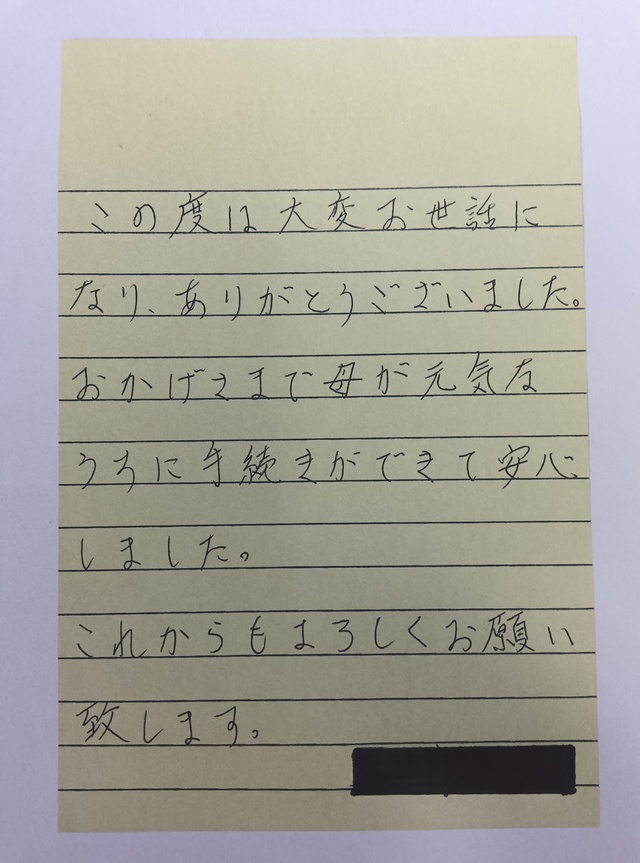 この度は大変お世話に
なり、ありがとうございました。
おかげさまで母が元気な
うちに手続きができて安心
しました。
これからもよろしくお願い
致します。